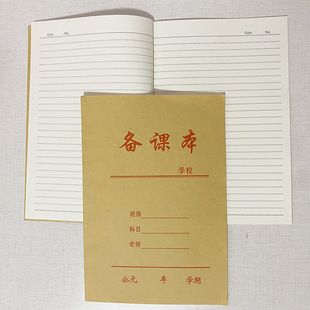 Date No. Date No.
备课本
学校
班级
科目
老师
公元 年 学期